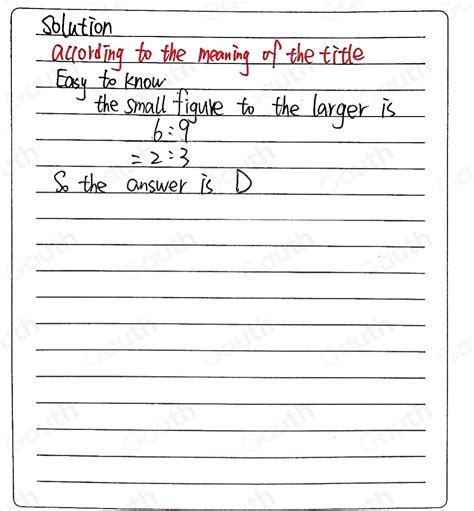 Solution
according to the meaning of the title
Easy to know
the small figure to the larger is
6:9
=2:3
So the answer is D